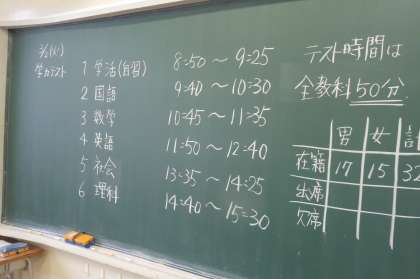 学力テスト
1 学活(自習) 8:50 ～ 9:25
2 国語 9:40 ～ 10:30
3 数学 10:45 ～ 11:35
4 英語 11:50 ～ 12:40
5 社会 13:35 ～ 14:25
6 理科 14:40 ～ 15:30
テスト時間は
全教科50分.
男 女 計
在籍 17 15 32
出席
欠席